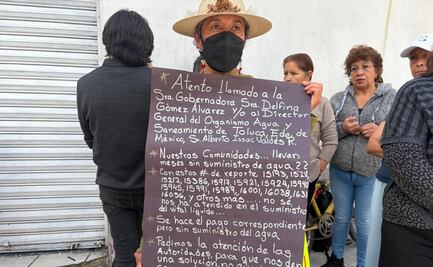 * Atento llamado a la
Sra. Gobernadora Sra. Delfina
Gómez Alvarez y/o al Director
General del Organismo Agua y
Saneamiento de Toluca, Edo. de
México, Sr. Alberto Issac Valdés R.
* Nuestras Comunidades... llevan
meses sin suministro de agua, 22
Con estos # de reporte 15193, 1529
15212, 15386, 15917, 15921, 15924, 15940
15945, 15991, 15989, 16001, 16038, 1631
16056, y otros más... no se
nos ha atendido en el suministro
del vital líquido...
* Se hace el pago correspondiente
pero sin suministro del agua
* Pedimos la atención de las
Autoridades, para que nos den
una solución